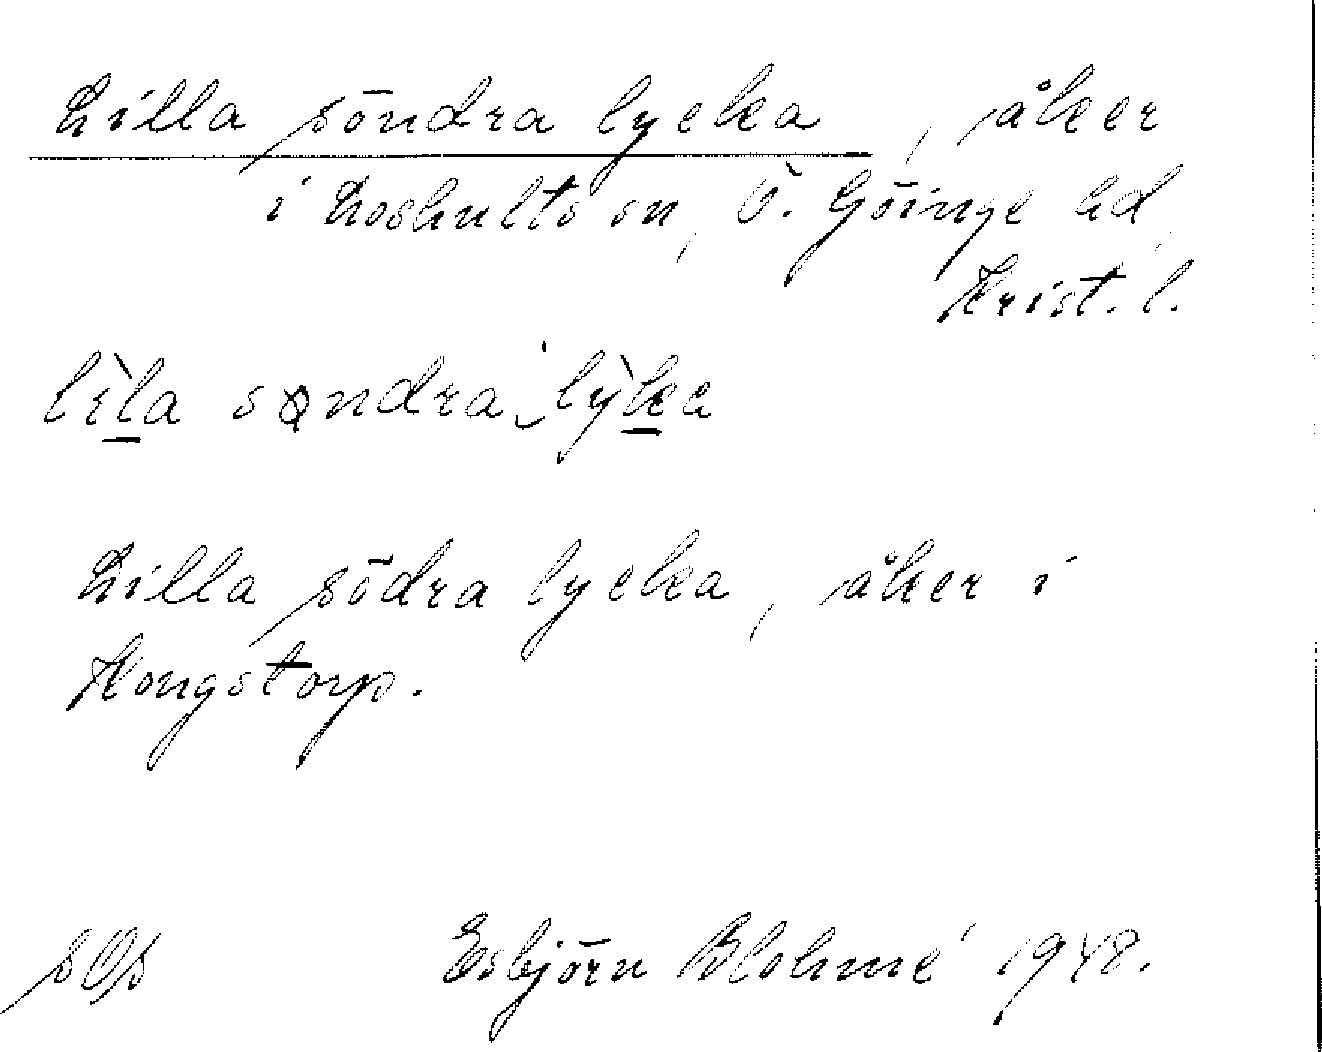 Lilla söndra lycka, åker
i Loshults sn, Ö. Göinge hd,
Krist. l.
lìla søndra lỳka
Lilla södra lycka, åker i
Kongstorp.
Esbjörn Blohmé 1948.